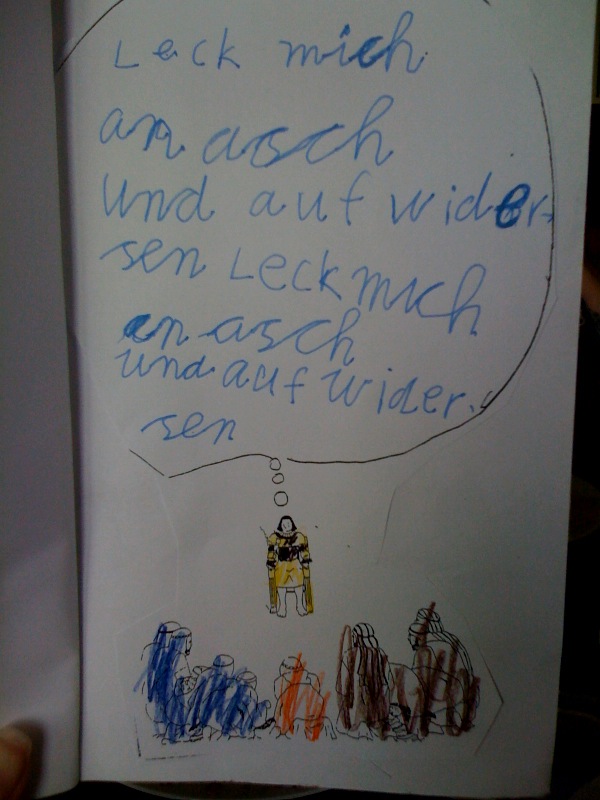 Leck mich
an asch
und auf wider-
sen Leck mich
an asch
und auf wider-
sen